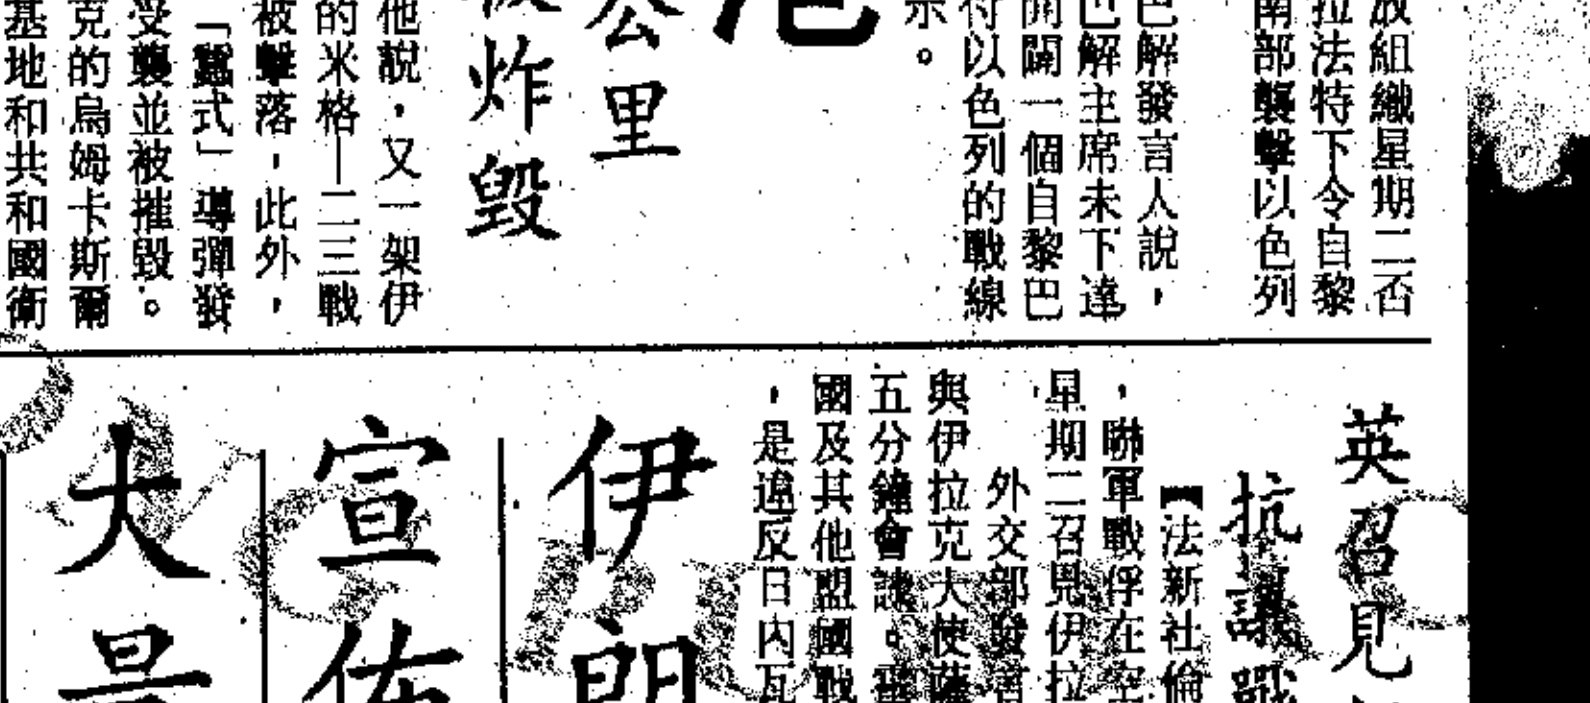 放組織星期二否
拉法特下令自黎
南部襲擊以色列
巴解發言人說，
巴解主席未下達
開闢一個自黎巴
以色列的戰線
示。
公里
炸毀
他說，又一架伊
的米格—二三戰
被擊落，此外，
「蠶式」導彈發
受襲並被摧毀。
克的烏姆卡斯爾
基地和共和國衛
英召見
抗議戰
【法新社倫
，聯軍戰俘在空
星期二召見伊拉
外交部發言
與伊拉克大使薩
五分鐘會談。電
國及其他盟國戰
，是違反日內瓦
伊朗
宣佈
大量